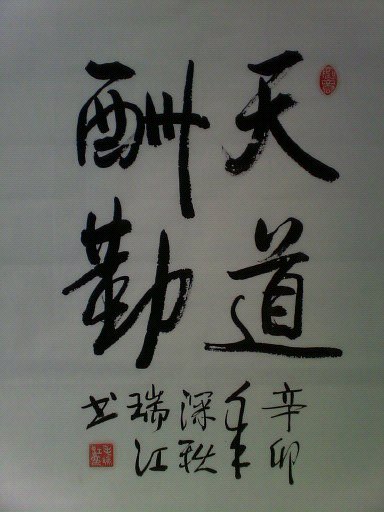 天道
酬勤
辛卯
年
深秋
瑞江
书